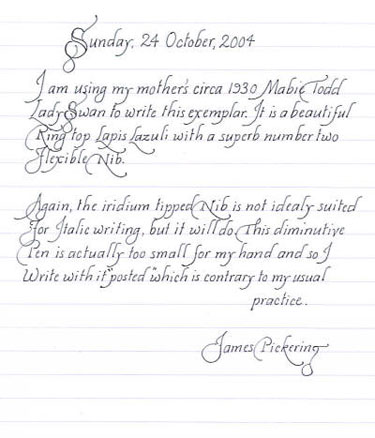 Sunday, 24 October, 2004
I am using my mother's circa 1930 Mabie Todd
Lady Swan to write this exemplar. It is a beautiful
Ring top Lapis Lazuli with a superb number two
Flexible Nib.
Again, the iridium tipped Nib is not idealy suited
For Italic writing, but it will do. This diminutive
Pen is actually too small for my hand and so I
Write with it "posted" which is contrary to my usual
practice.
James Pickering